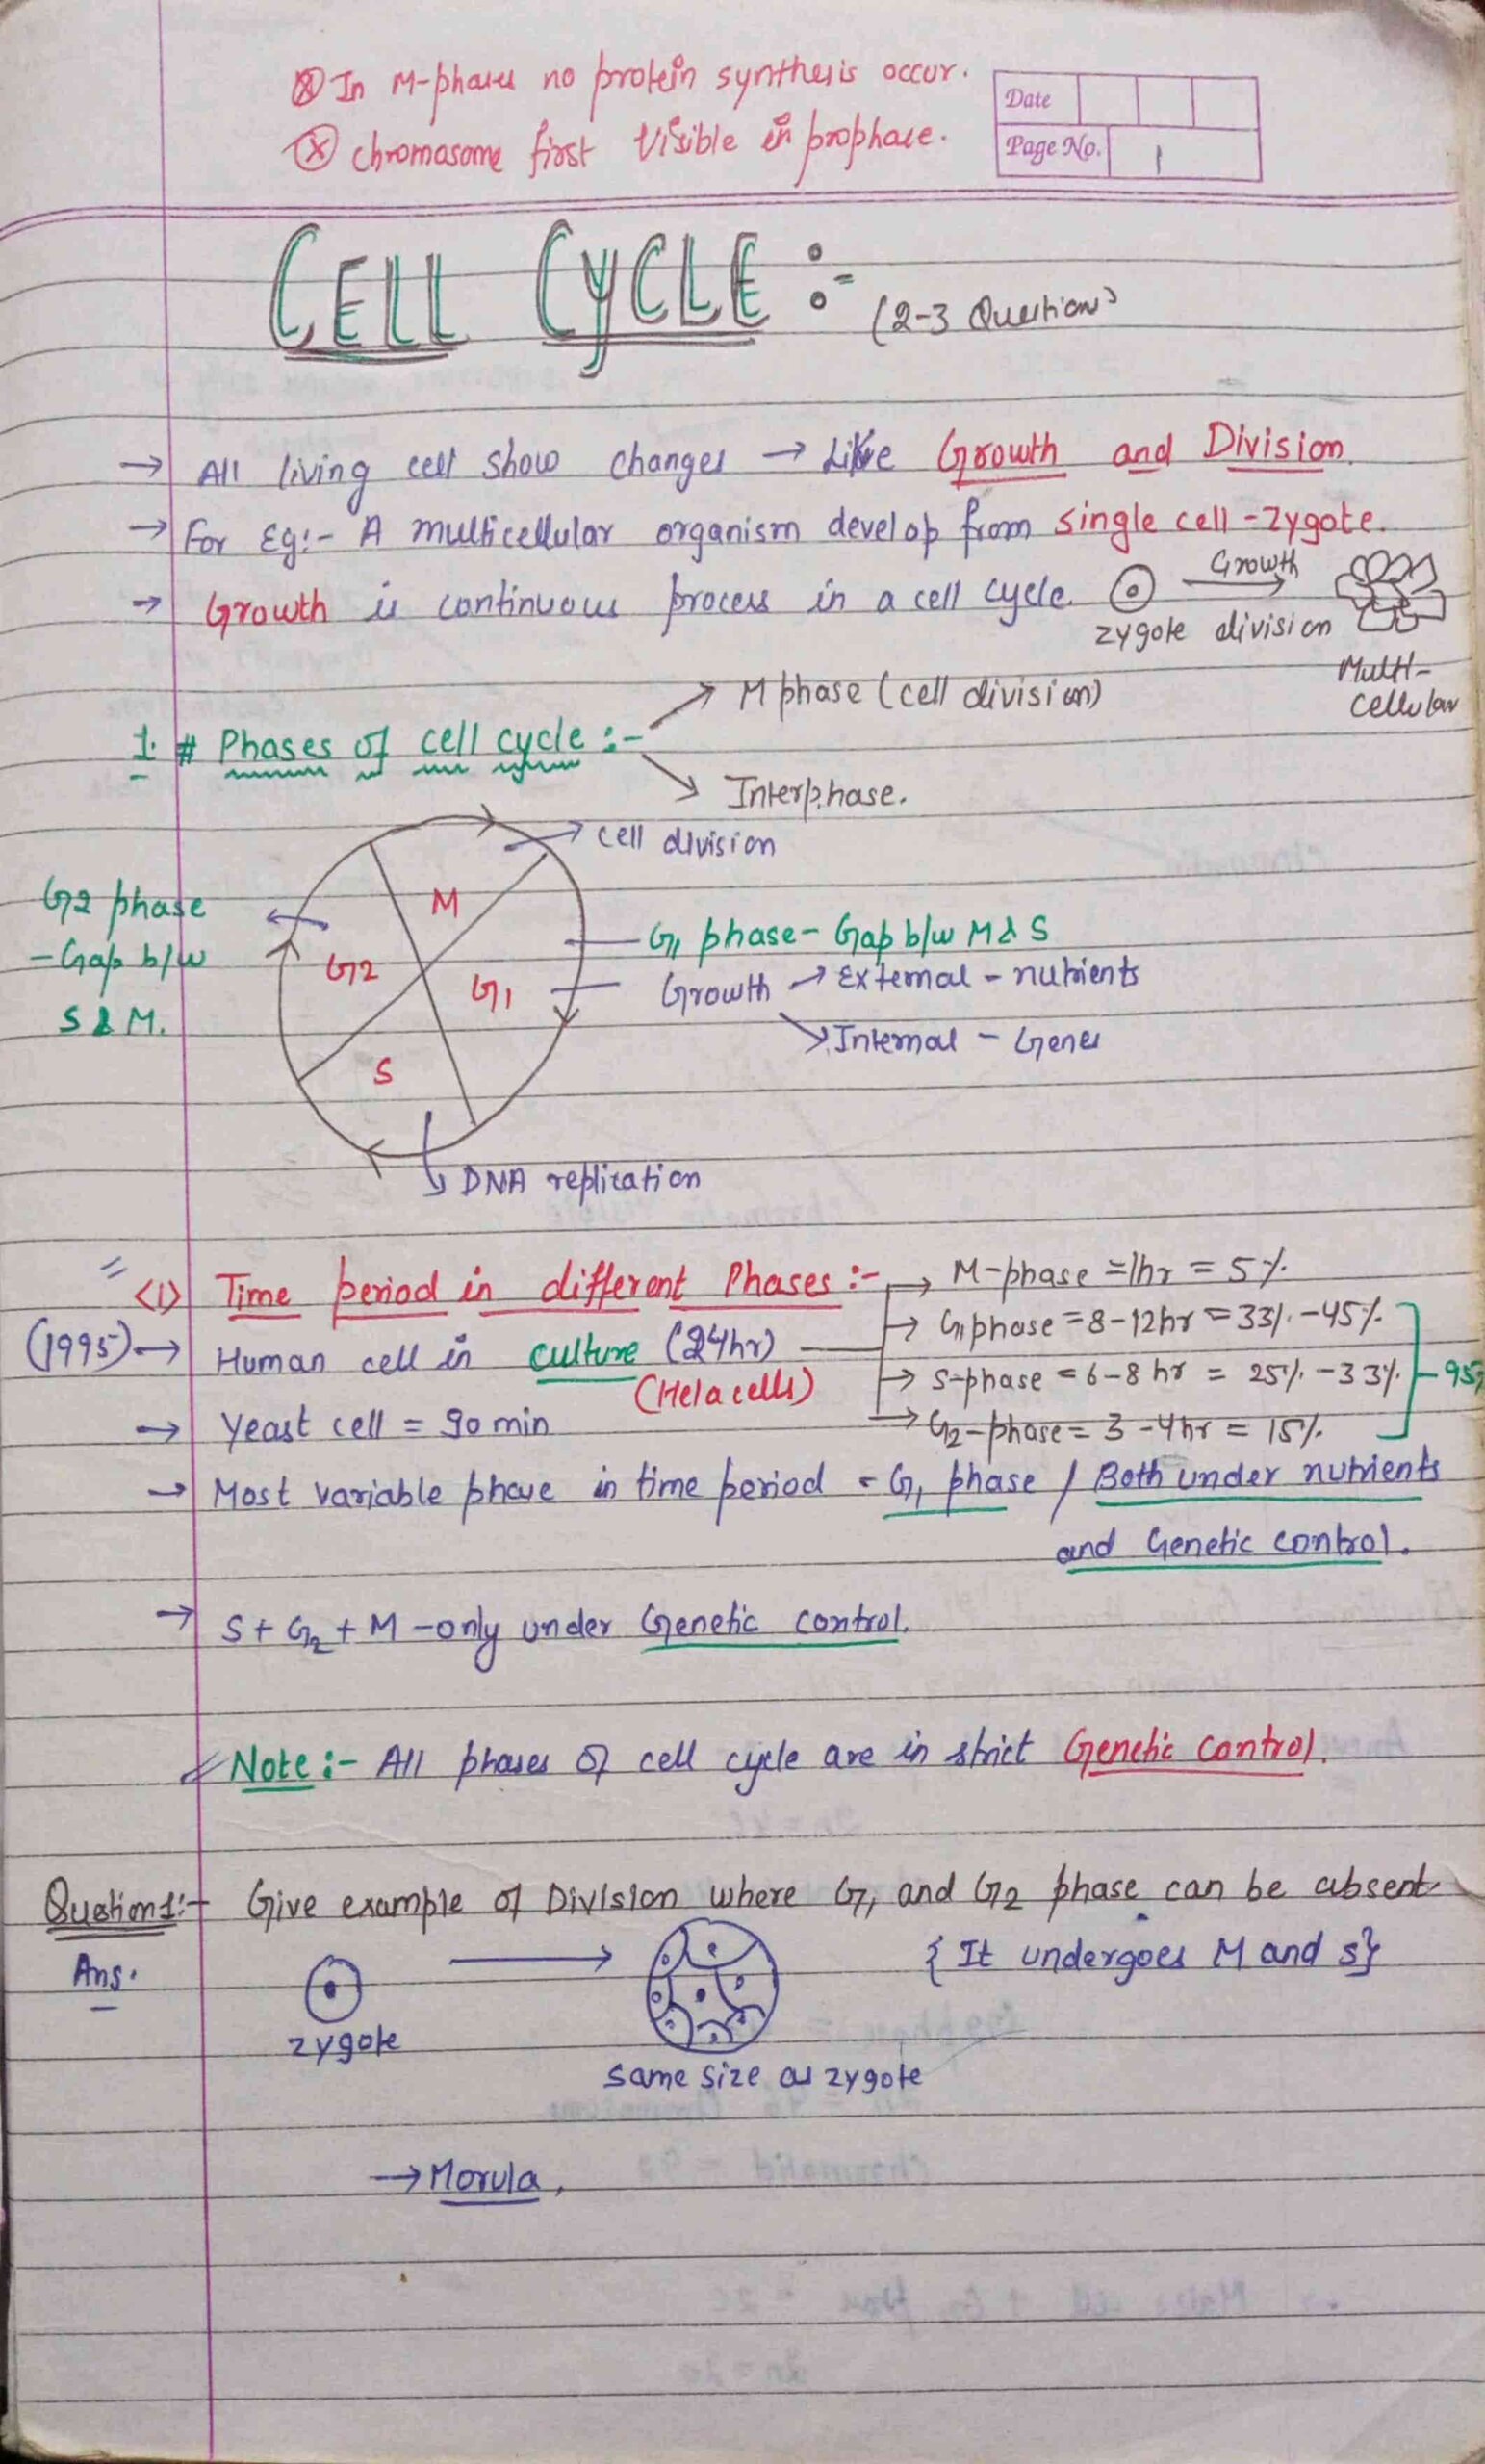 ⊗ In M-phases no protein synthesis occur.
⊗ chromasome first visible in prophase.
Date
Page No. 1
CELL CYCLE :- (2-3 Questions)
→ All living cell show changes → Like Growth and Division.
→ For Eg:- A multicellular organism develop from single cell - zygote.
→ Growth is continuous process in a cell cycle.
Growth
zygote division
Multi-
cellular
→ M phase (cell division)
1. # Phases of cell cycle :-
→ Interphase.
→ cell division
G2 phase
- Gap b/w
S & M.
M
G2
G1
S
G1 phase - Gap b/w M & S
Growth → External - nutrients
→ Internal - Genes
→ DNA replication
<1> Time period in different Phases :- → M-phase = 1hr = 5%.
→ G1 phase = 8-12hr = 33%-45%.
(1995) → Human cell in culture (24hr)
(Hela cells)
→ S-phase = 6-8 hr = 25%-33%. - 95%
→ G2-phase = 3-4hr = 15%.
→ Yeast cell = 90 min
→ Most variable phase in time period = G1 phase / Both under nutrients
and Genetic control.
→ S + G2 + M - only under Genetic control.
Note :- All phases of cell cycle are in strict Genetic control.
Question1:- Give example of Division where G1 and G2 phase can be absent.
Ans. {It undergoes M and S}
zygote
same size as zygote
→ Morula,